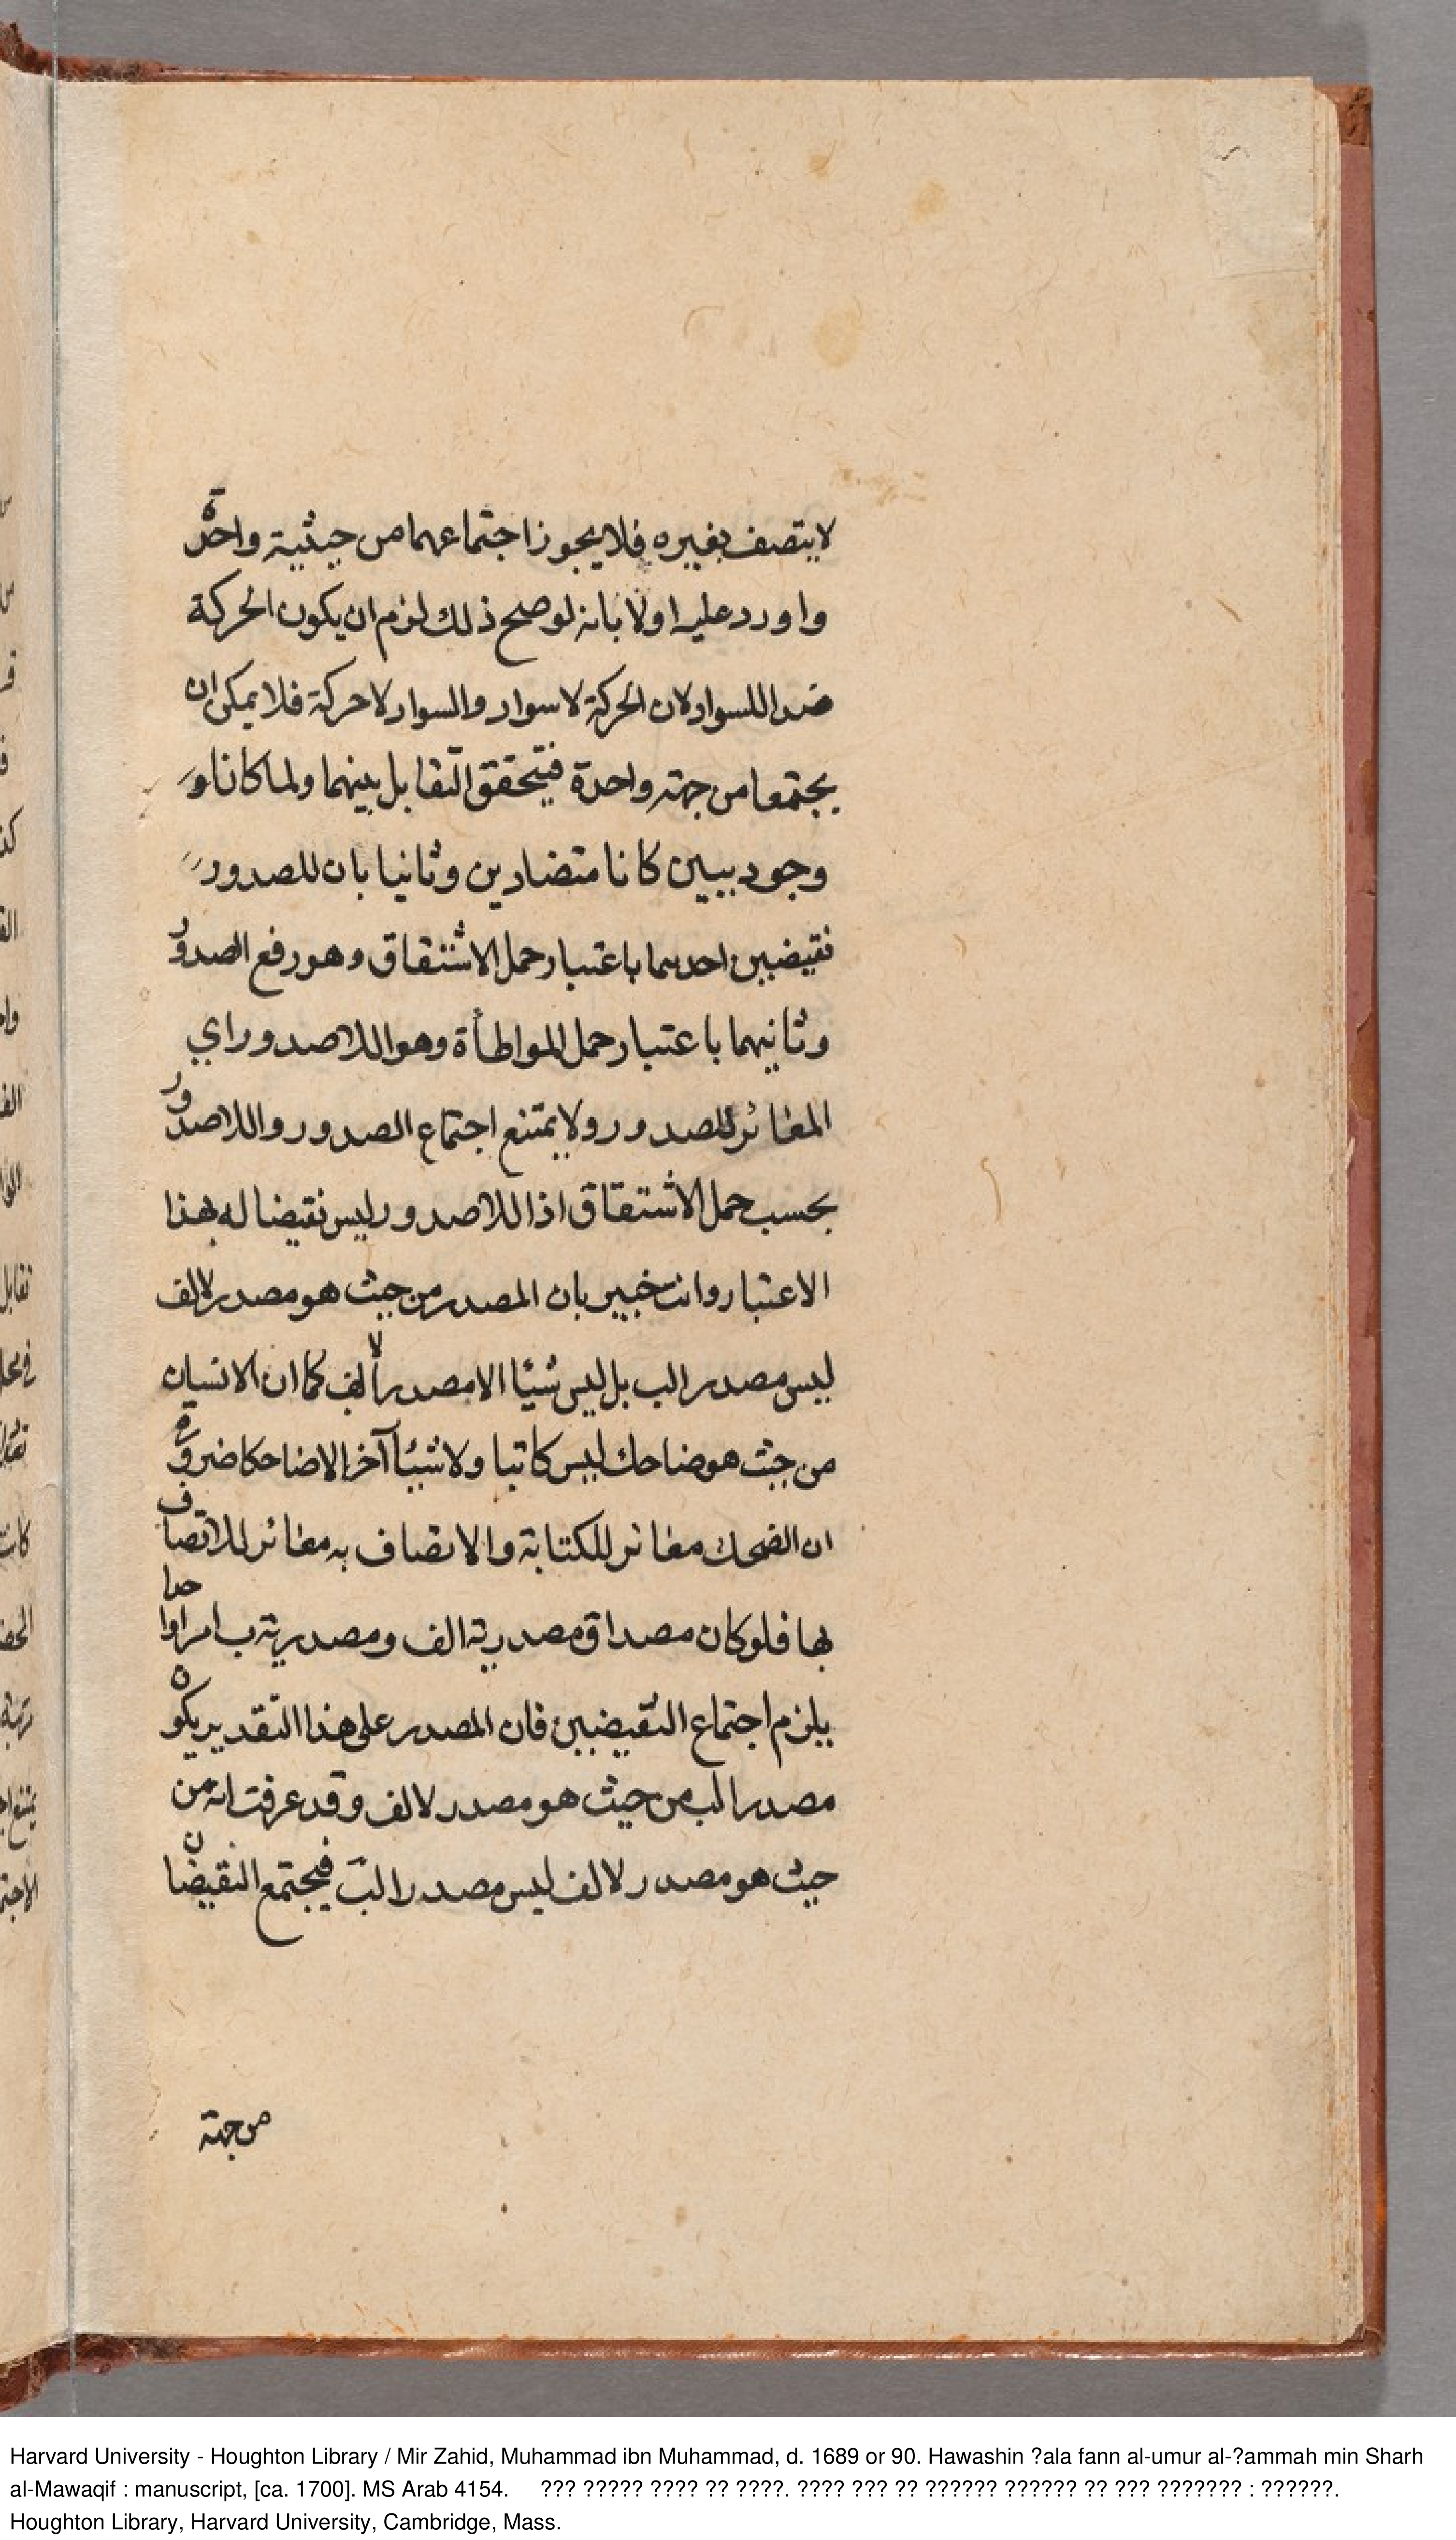 لا يتصف بغيره فلا يجوز اجتماعهما من حيثية واحدة
واورد عليه اولا بانه لو صح ذلك لزم ان يكون الحركة
ضدا للسواد لان الحركة لا سواد والسواد لا حركة فلا يمكن ان
يجتمعا من جهة واحدة فيتحقق التقابل بينهما ولما كانا
وجوديين كانا متضادين وثانيا بان للصدور
نقيضين احدهما باعتبار حمل الاشتقاق وهو رفع الصدور
وثانيهما باعتبار حمل المواطأة وهو اللاصدور اي
المغائر للصدور ولا يمتنع اجتماع الصدور واللاصدور
بحسب حمل الاشتقاق اذ اللاصدور ليس نقيضا له بهذا
الاعتبار وانت خبير بان المصدر من حيث هو مصدر لالف
ليس مصدرا لب بل ليس شيئا الا مصدرا لالف كما ان الانسان
من حيث هو ضاحك ليس كاتبا ولا شيئا آخر الا ضاحكا ضرورة
ان الضحك مغائر للكتابة والاتصاف به مغائر للاتصاف
بها فلو كان مصداق مصدرية الف ومصدرية ب امرا واحدا
يلزم اجتماع النقيضين فان المصدر على هذا التقدير يكون
مصدرا لب من حيث هو مصدر لالف وقد عرفت انه من
حيث هو مصدر لالف ليس مصدرا لب فيجتمع النقيضان
من جهة
Harvard University - Houghton Library / Mir Zahid, Muhammad ibn Muhammad, d. 1689 or 90. Hawashin ?ala fann al-umur al-?ammah min Sharh
al-Mawaqif : manuscript, [ca. 1700]. MS Arab 4154. ??? ????? ???? ?? ????. ???? ??? ?? ?????? ?????? ?? ??? ??????? : ??????.
Houghton Library, Harvard University, Cambridge, Mass.